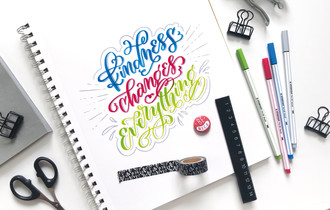 kindness
changes
everything